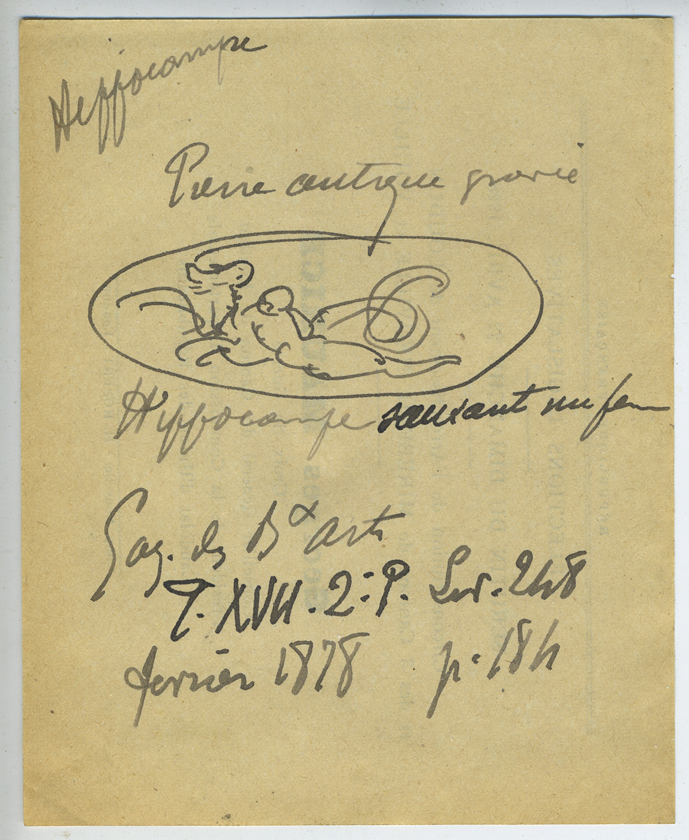 Hippocampe
Pierre antique gravée
Hippocampe sauvant une fem
Gaz. des Bx Arts
T. XVII. 2e P. Liv. 248
février 1878 p. 184